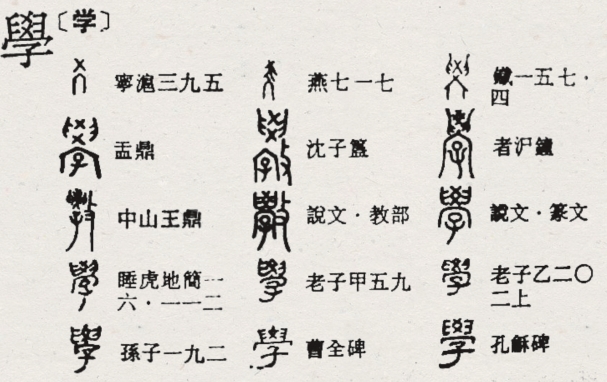 學〔学〕
寧滬三九五 燕七一七 鐵一五七·四
盂鼎 沈子簋 者沪鐘
中山王鼎 說文·教部 說文·篆文
睡虎地簡一六·一一二 老子甲五九 老子乙二〇二上
孫子一九二 曹全碑 孔龢碑